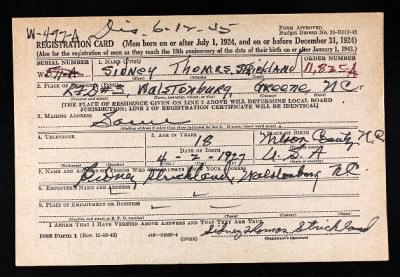 W-497-A Dis. 6-12-45
FORM APPROVED
Budget Bureau No. 33-R013-42
REGISTRATION CARD (Men born on or after July 1, 1924, and on or before December 31, 1924)
(Also for the registration of men as they reach the 18th anniversary of the date of their birth on or after January 1, 1943.)
SERIAL NUMBER 1. NAME (Print) ORDER NUMBER
W SIDNEY THOMAS STRICKLAND 11,825-A
(First) (Middle) (Last)
2. PLACE OF RESIDENCE (Print)
RFD #3 WALSTONBURG GREENE N.C.
[THE PLACE OF RESIDENCE GIVEN ON LINE 2 ABOVE WILL DETERMINE LOCAL BOARD
JURISDICTION; LINE 2 OF REGISTRATION CERTIFICATE WILL BE IDENTICAL]
3. MAILING ADDRESS
Same
4. TELEPHONE 5. AGE IN YEARS 6. PLACE OF BIRTH
18 Wilson County N.C.
DATE OF BIRTH
4-2-1927 U.S.A
7. NAME AND ADDRESS OF PERSON WHO WILL ALWAYS KNOW YOUR ADDRESS
Sidney Strickland, Walstonburg N.C.
8. EMPLOYER'S NAME AND ADDRESS
9. PLACE OF EMPLOYMENT OR BUSINESS
I AFFIRM THAT I HAVE VERIFIED ABOVE ANSWERS AND THAT THEY ARE TRUE.
DSS Form 1 (Rev. 11-16-42) (OVER) Sidney Thomas Strickland
(Registrant's signature)